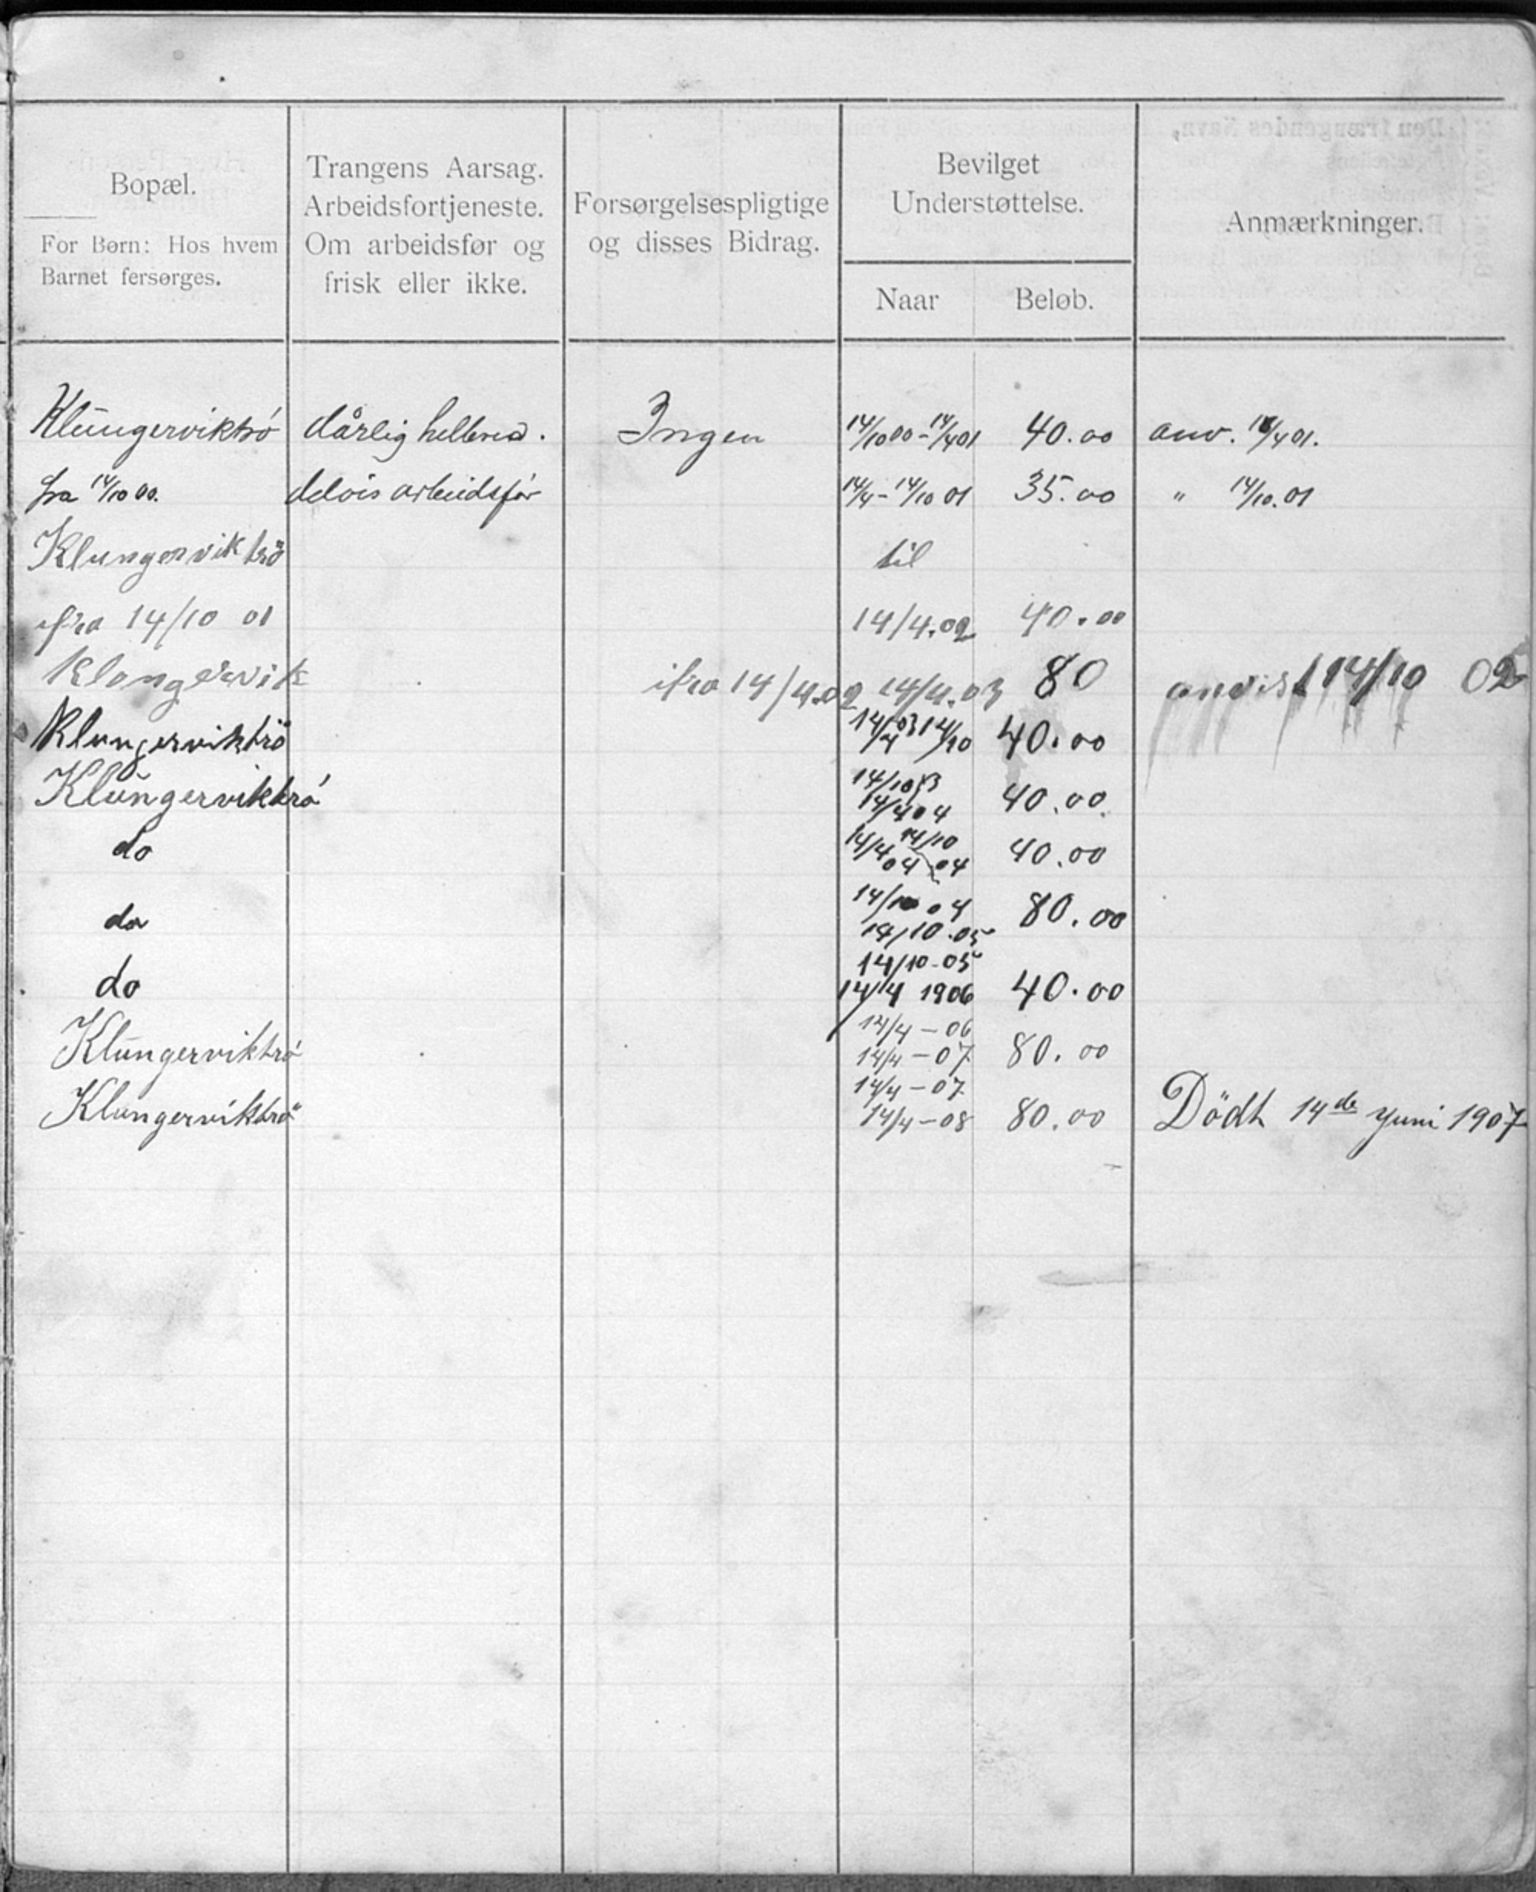 Bopæl.
For Børn: Hos hvem
Barnet fersørges.
Trangens Aarsag.
Arbeidsfortjeneste.
Om arbeidsfør og
frisk eller ikke.
Forsørgelsespligtige
og disses Bidrag.
Bevilget
Understøttelse.
Naar Beløb.
Anmærkninger.
Klungerviktrö dårlig helbred. Ingen 14/10 00 - 14/4 01 40.00 anv. 14/4 01.
fra 14/10 00. delvis arbeidsför 14/4 - 14/10 01 35.00 " 14/10.01
Klungerviktrö til
ifra 14/10 01 14/4.02 40.00
Klongervik ifra 14/4.02 14/4.03 80 anvist 14/10 02
Klungerviktrö 14/4 03 14/10 40.00
Klungerviktrö 14/10 03
14/4 04 40.00
do 14/4 04 14/10 04 40.00
do 14/10 04
14/10.05 80.00
do 14/10-05
14/4 1906 40.00
Klungerviktrö 14/4 - 06
14/4 - 07 80.00
Klungerviktrö 14/4 - 07
14/4 - 08 80.00 Dödt 14de Juni 1907